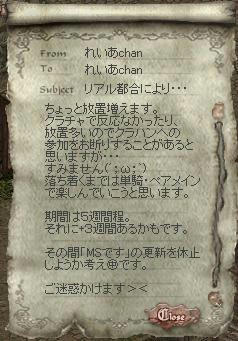 From れいあchan
To れいあchan
Subject リアル都合により・・・
ちょっと放置増えます。
クラチャで反応なかったり、
放置多いのでクラハンへの
参加をお断りすることがあると
思いますが…
すみません(´;ω;`)
落ち着くまでは単騎・ペアメイン
で楽しんでいこうと思います。
期間は5週間程。
それに+3週間あるかもです。
その間「MSです」の更新を休止
しようか考え中です。
ご迷惑かけます><
Close